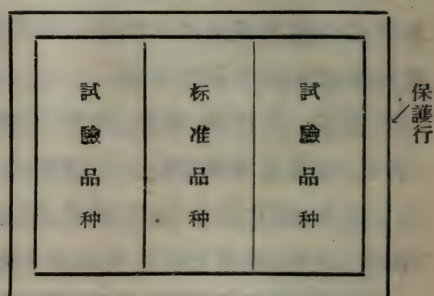 試驗品种
标准品种
試驗品种
保護行